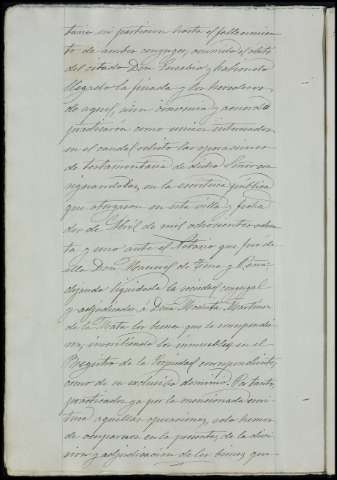 taria ni particion hasta el fallecimien
to de ambos conyuges, ocurrido el obito
del citado Don Eusebio y habiendo
llegado la finada y los herederos
de aquel, sin
practicaron como unicos interesados
en el caudal relicto las operaciones
de testamentaria de dicho Señor con
signandolas, en la escritura publica
que otorgaron en esta villa y fecha
dos de Abril de mil ochocientos ochen
ta y uno ante el Notario que fue de
ella Don Manuel de
dejando liquidada la sociedad conyugal
y adjudicados á Doña Martinez
de la Mata los bienes que la correspondie
ron, inscribiendo los inmuebles en el
Registro de la Propiedad correspondiente,
como de su esclusivo dominio. Por tanto,
practicadas ya por la mencionada escri
tura aquellas operaciones, solo hemos
de ocuparnos en la presente, de la divi
sion y adjudicacion de los bienes que